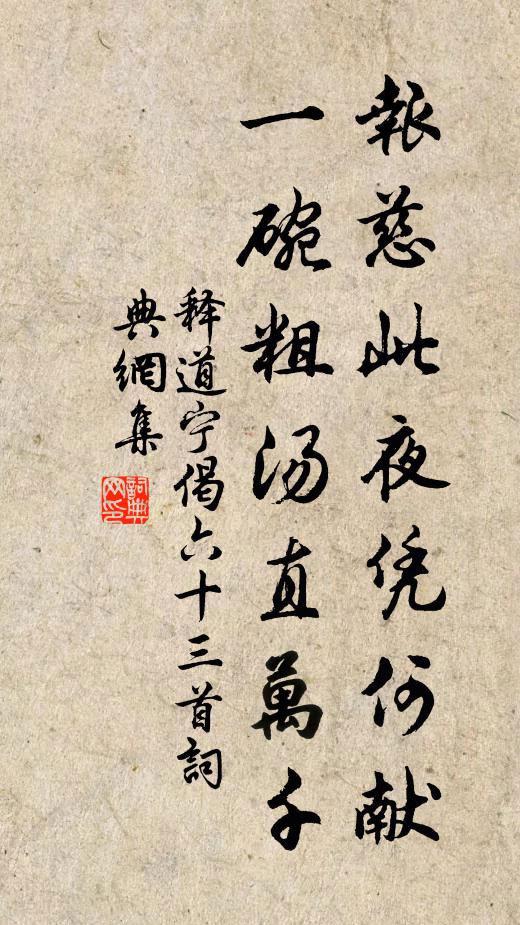 報慈此夜凭何献
一碗粗汤直萬千
释道宁偈六十三首詞
典網集
詞典
网印